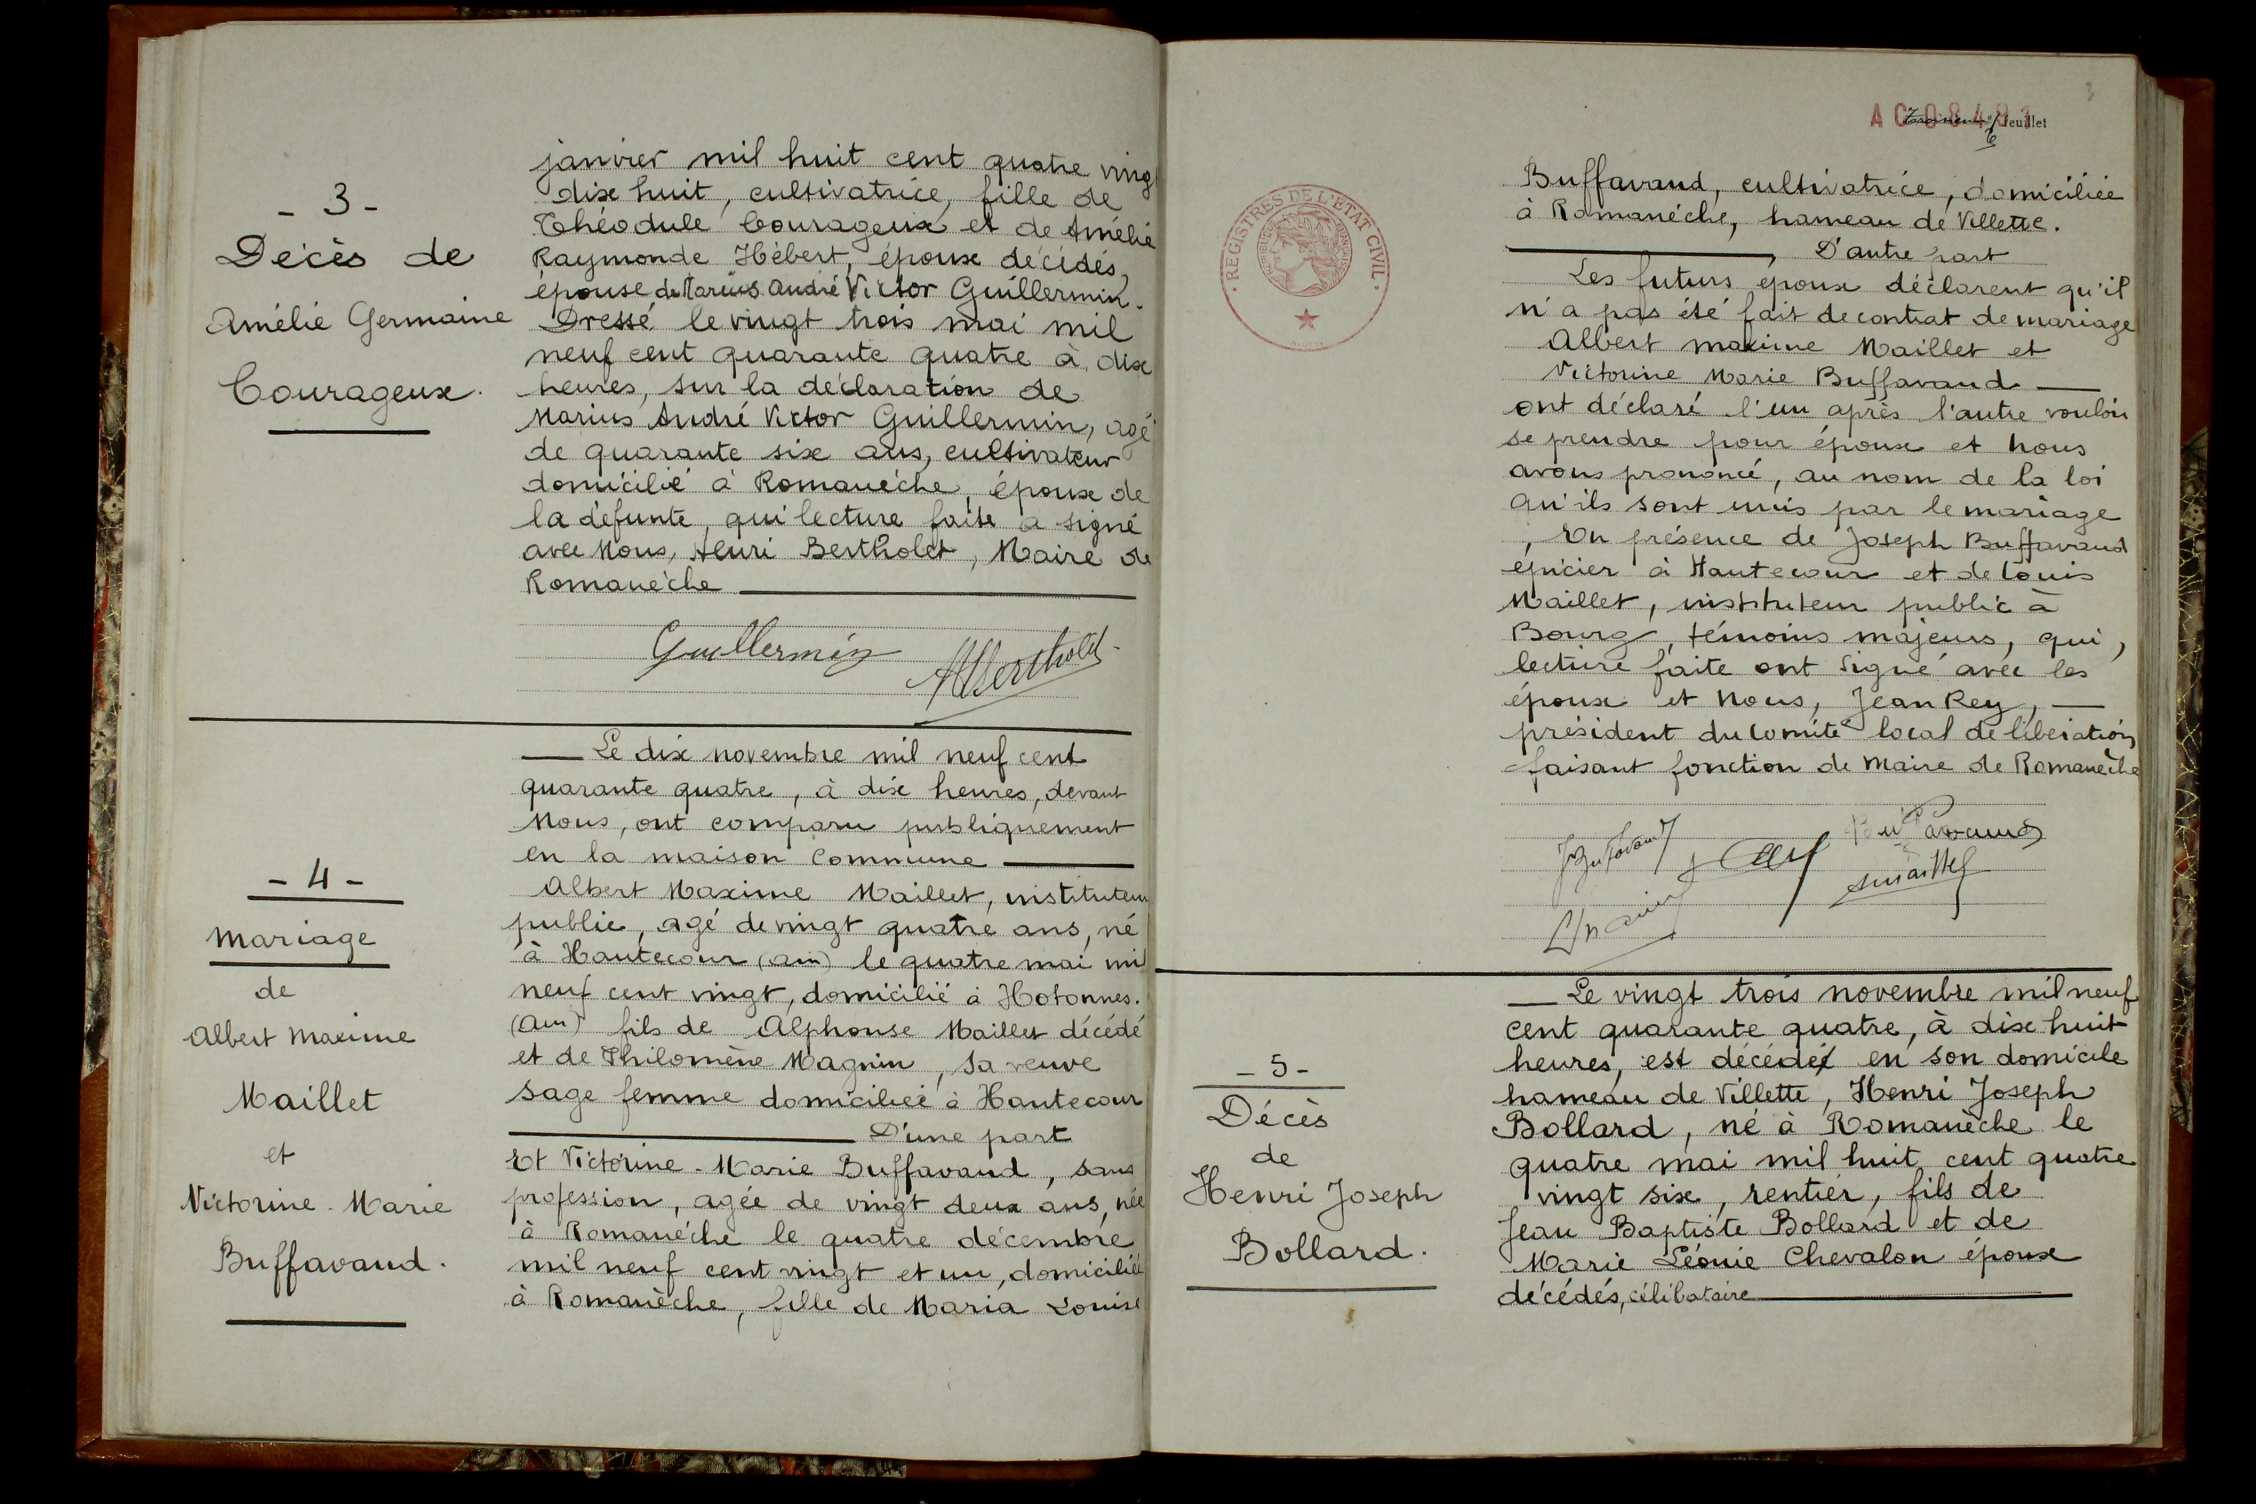 - 3 -
Décès de
Amélie Germaine
Courageux.
janvier mil huit cent quatre ving
dix huit, cultivatrice, fille de
Théodule Courageux et de Amélie
Raymonde Hébert, époux décédés,
épouse de Marius André Victor Guillermin.
Dressé le vingt trois mai mil
neuf cent quarante quatre à dix
heures, sur la déclaration de
Marius André Victor Guillermin, agé
de quarante six ans, cultivateur
domicilié à Romanèche, époux de
la défunte, qui lecture faite a signé
avec Nous, Henri Bertholet, Maire de
Romanèche
Guillermin
HBertholet
- 4 -
Mariage
de
Albert Maxime
Maillet
et
Victorine - Marie
Buffavand.
Le dix novembre mil neuf cent
quarante quatre, à dix heures, devant
Nous, ont comparu publiquement
en la maison Commune
Albert Maxime Maillet, instituteur
public, agé de vingt quatre ans, né
à Hautecour (Ain) le quatre mai mil
neuf cent vingt, domicilié à Hotonnes.
(Ain) fils de Alphonse Maillet décédé
et de Philomène Magnin, sa veuve
sage femme domiciliée à Hautecour
D'une part
Et Victorine - Marie Buffavand, sans
profession, agée de vingt deux ans, née
à Romanèche le quatre décembre
mil neuf cent vingt et un, domiciliée
à Romanèche, fille de Maria Louise
AC 08403
feuillet
REGISTRES DE L'ETAT CIVIL
Buffavand, cultivatrice, domiciliée
à Romanèche, hameau de Villette.
D'autre part
Les futurs époux déclarent qu'il
n'a pas été fait de contrat de mariage
Albert maxime Maillet et
Victorine Marie Buffavand
ont déclaré l'un après l'autre vouloir
se prendre pour époux et nous
avons prononcé, au nom de la loi
qu'ils sont unis par le mariage
, En présence de Joseph Buffavand
épicier à Hautecour et de Louis
Maillet, instituteur public à
Bourg, témoins majeurs, qui,
lecture faite ont signé avec les
époux et Nous, Jean Rey,
président du comité local de libération
faisant fonction de Maire de Romanèche
- 5 -
Décès
de
Henri Joseph
Bollard.
Le vingt trois novembre mil neuf
cent quarante quatre, à dix huit
heures, est décédé en son domicile
hameau de Villette, Henri Joseph
Bollard, né à Romanèche le
quatre mai mil huit cent quatre
vingt six, rentier, fils de
Jean Baptiste Bollard et de
Marie Léonie Chevalon époux
décédés, célibataire